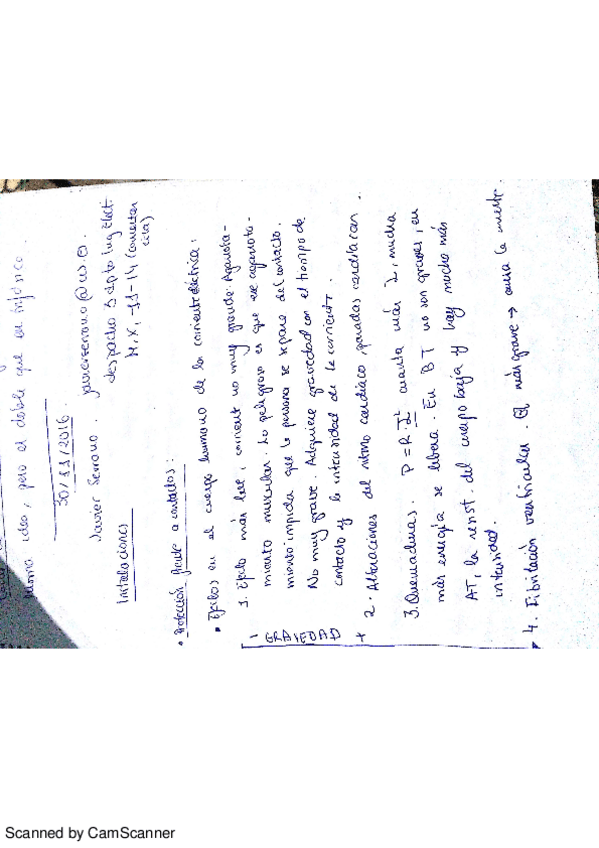 misma idea, pero el doble que en trifásico.
30/11/2016
Javier Serrano. javierserrano@us.es
despacho 3 dpto Ing Eléct
M, X, -11-14 (concertar cita)
Instalaciones
• Protección frente a contactos:
• Efectos en el cuerpo humano de la corriente eléctrica:
1. Efecto más leve, corrient no muy grande: Agarrota-
miento muscular. Lo peligroso es que ese agarrota-
miento impida que la persona se separe del contacto.
No muy grave. Adquiere gravedad con el tiempo de
contacto y la intensidad de la corriente.
2. Alteraciones del ritmo cardiaco, paradas cardiacas
3. Quemaduras. P=R·I² cuanta más I, mucha
más energía se libera. En BT no son graves, en
AT, la resist. del cuerpo baja y hay mucho más
intensidad.
4. Fibrilación ventricular. El más grave → causa la muerte.
- GRAVEDAD +
Scanned by CamScanner